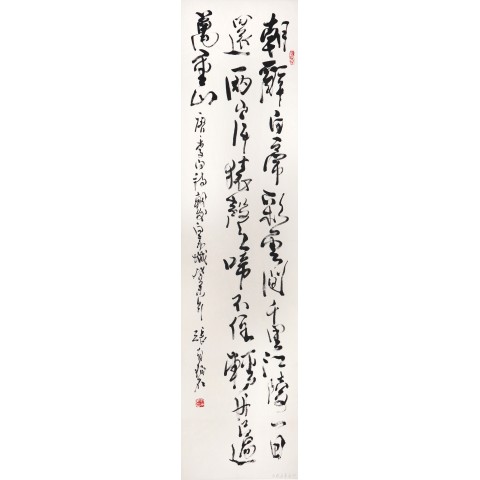 朝辭白帝彩雲間千里江陵一日
還兩岸猿聲啼不住輕舟已過
萬重山
唐李白詩朝發白帝城癸未年張